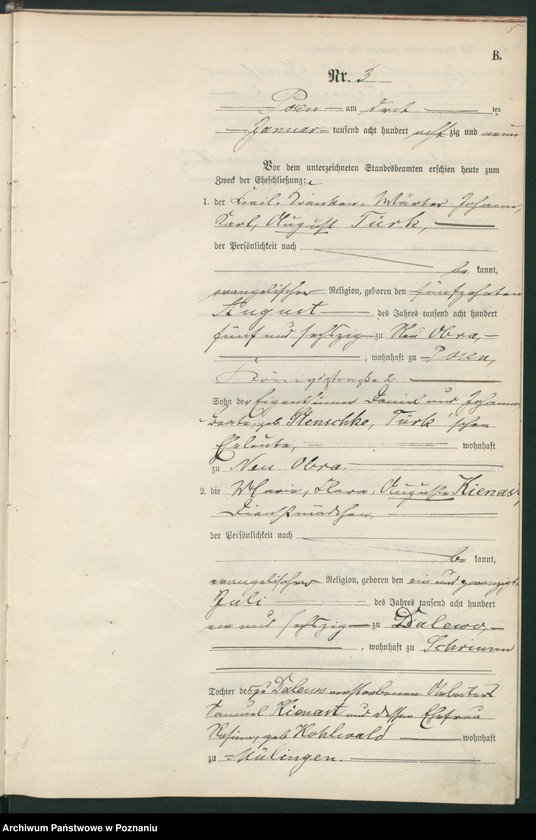 B.
Nr. 3
Posen am drei ten
Januar tausend acht hundert achtzig und neun
Vor dem unterzeichneten Standesbeamten erschien heute zum
Zweck der Eheschließung:
1. der Civil-Kranken-Wärter Johann,
Karl, August Türk,
der Persönlichkeit nach
be kannt,
evangelischer Religion, geboren den fünfzehnten
August des Jahres tausend acht hundert
fünf und sechszig zu Neu Obra,
, wohnhaft zu Posen,
Königsstraße 2
Sohn der Eigenthümer Daniel und Johanna
Beate, geb. Stenschke, Türk'schen
Eheleute, wohnhaft
zu Neu Obra.
2. die Marie, Klara, Auguste Kienast,
Dienstmädchen,
der Persönlichkeit nach
be kannt,
evangelischer Religion, geboren den ein und zwanzigsten
Juli des Jahres tausend acht hundert
und sechszig zu Dalewo,
, wohnhaft zu Schrimm
Tochter des zu Dalewo verstorbenen Arbeiters
Samuel Kienast und dessen Ehefrau
Rosine, geb. Kohlwald wohnhaft
zu Mülingen.
Archiwum Państwowe w Poznaniu